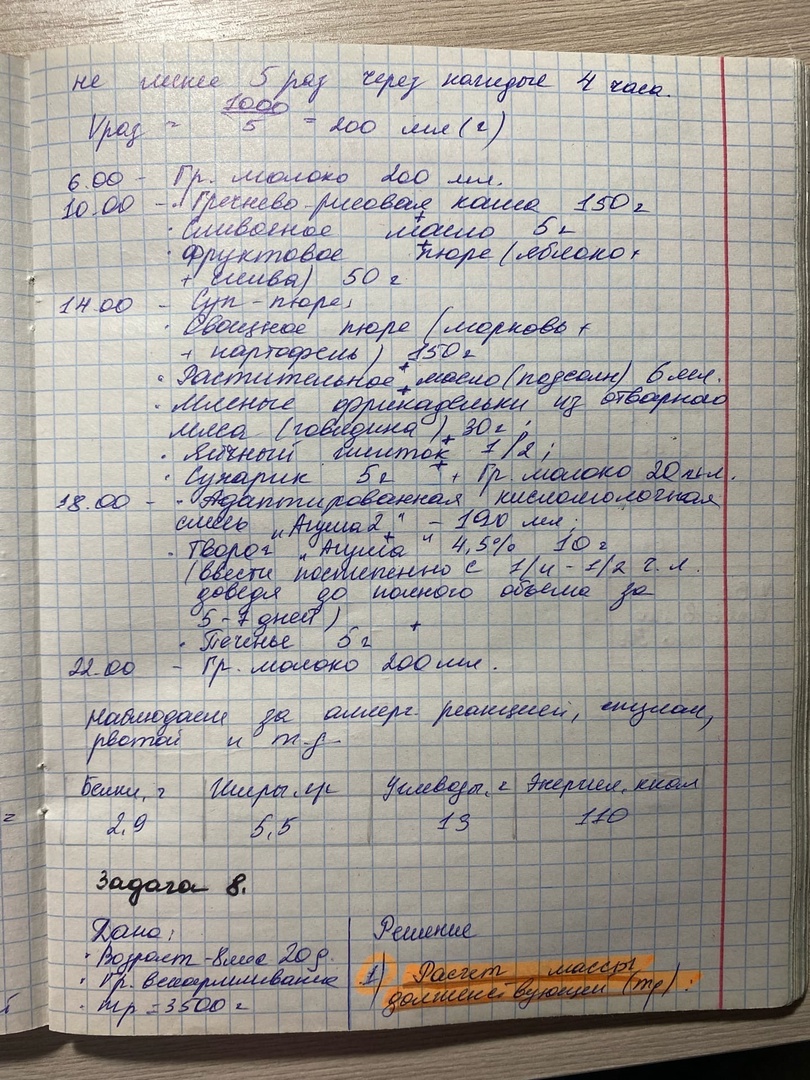 не менее 5 раз через каждые 4 часа.
Vраз = 1000/5 = 200 мл (г)
6.00 - Гр. молоко 200 мл.
10.00 - · Гречнево-рисовая каша 150 г +
· Сливочное масло 5 г +
· Фруктовое пюре (яблоко +
+ слива) 50 г
14.00 - Суп-пюре:
· Овощное пюре (морковь +
+ картофель) 150 г +
· Растительное масло (подсолн) 6 мл. +
· Мясные фрикадельки из отварного
мяса (говядина) 30 г; +
· Яичный желток 1/2; +
· Сухарик 5 г + Гр. молоко 20 мл.
18.00 - · Адаптированная кисломолочная
смесь "Агуша 2" - 190 мл; +
· Творог "Агуша" 4,5% 10 г
(ввести постепенно с 1/4 - 1/2 ч.л.
доведя до полного объема за
5-7 дней) +
· Печенье 5 г
22.00 - Гр. молоко 200 мл.
Наблюдаем за аллерг. реакцией, стулом,
рвотой и т.д.
Белки, г Жиры, гр Углеводы, г Энергия, ккал
2,9 5,5 13 110
Задача 8.
Дано: Решение
· Возраст - 8 мес 20 д.
· Гр. вскармливание 1) Расчет массы
· mр = 3500 г долженствующей (mд):